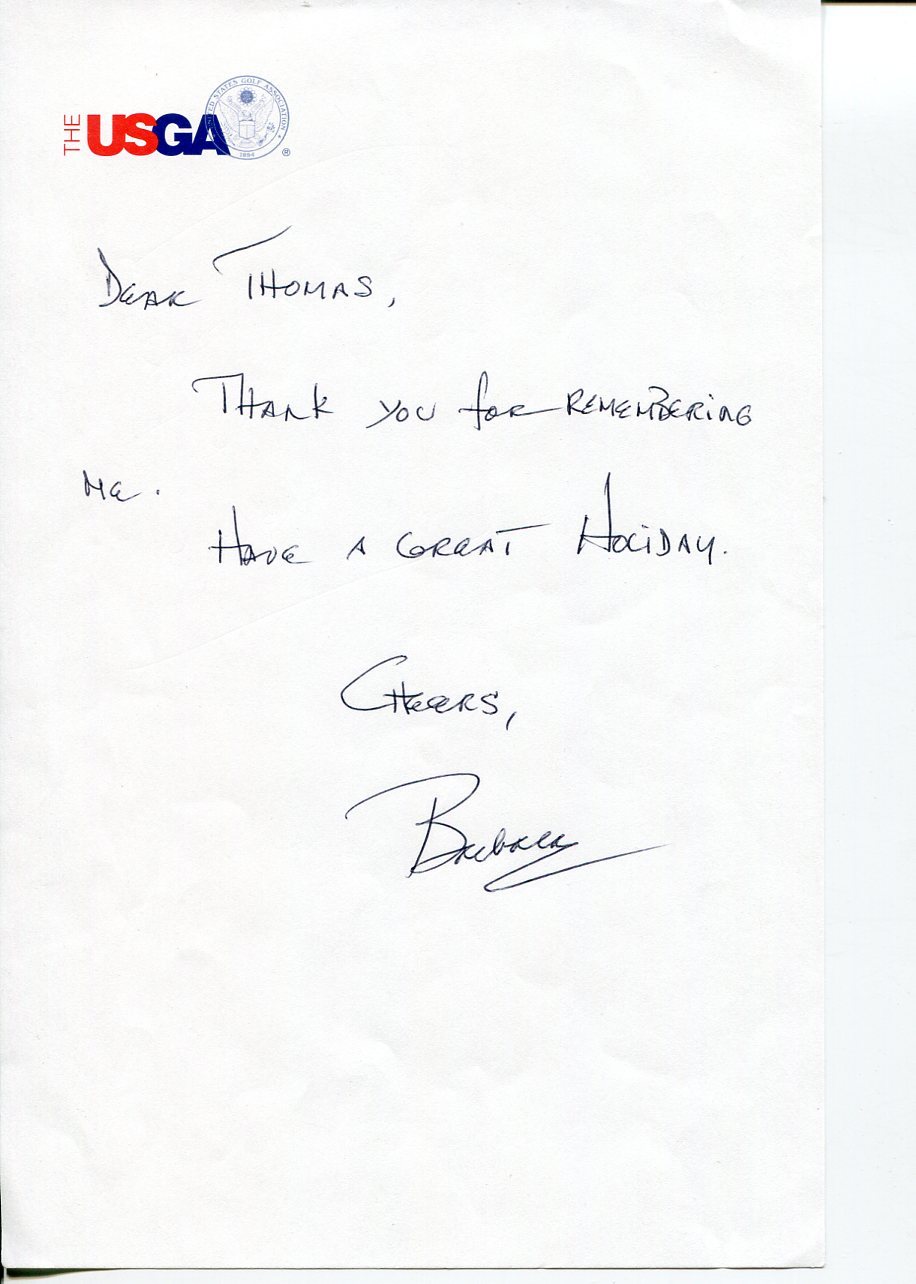 THE USGA
UNITED STATES GOLF ASSOCIATION
1894
®
DEAR THOMAS,
THANK YOU FOR REMEMBERING
ME.
HAVE A GREAT HOLIDAY.
CHEERS,
Barbara